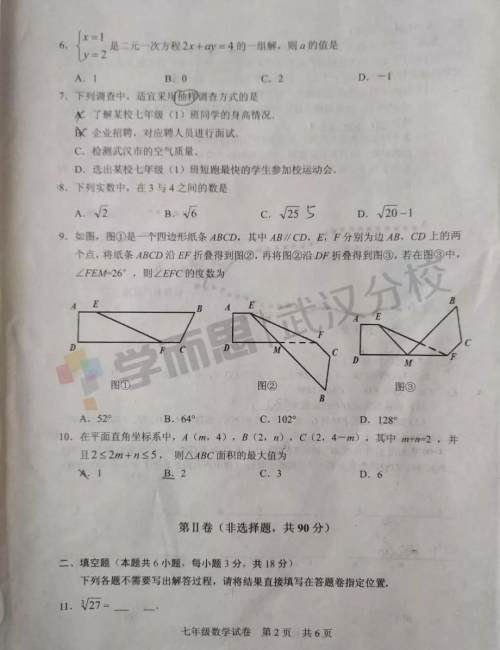 6. { x = 1
y = 2 是二元一次方程 2x + ay = 4 的一组解，则 a 的值是
A. 1 B. 0 C. 2 D. －1
7. 下列调查中，适宜采用抽样调查方式的是
A. 了解某校七年级（1）班同学的身高情况.
B. 企业招聘，对应聘人员进行面试.
C. 检测武汉市的空气质量.
D. 选出某校七年级（1）班短跑最快的学生参加校运动会.
8. 下列实数中，在 3 与 4 之间的数是
A. √2 B. √6 C. √25 5 D. √20 －1
9. 如图，图①是一个四边形纸条 ABCD，其中 AB∥CD，E，F 分别为边 AB，CD 上的两
个点，将纸条 ABCD 沿 EF 折叠得到图②，再将图②沿 DF 折叠得到图③，若在图③中，
∠FEM=26°，则∠EFC 的度数为
A E B D F C
A E D M F C B
A E B D M F C
学而思 武汉分校
图① 图② 图③
A. 52° B. 64° C. 102° D. 128°
10. 在平面直角坐标系中，A（m，4），B（2，n），C（2，4－m），其中 m+n=2，并
且 2 ≤ 2m + n ≤ 5，则△ABC 面积的最大值为
A. 1 B. 2 C. 3 D. 6
第Ⅱ卷（非选择题，共 90 分）
二、填空题（本题共 6 小题，每小题 3 分，共 18 分）
下列各题不需要写出解答过程，请将结果直接填写在答题卷指定位置.
11. ∛27 = __ __.
七年级数学试卷 第 2 页 共 6 页